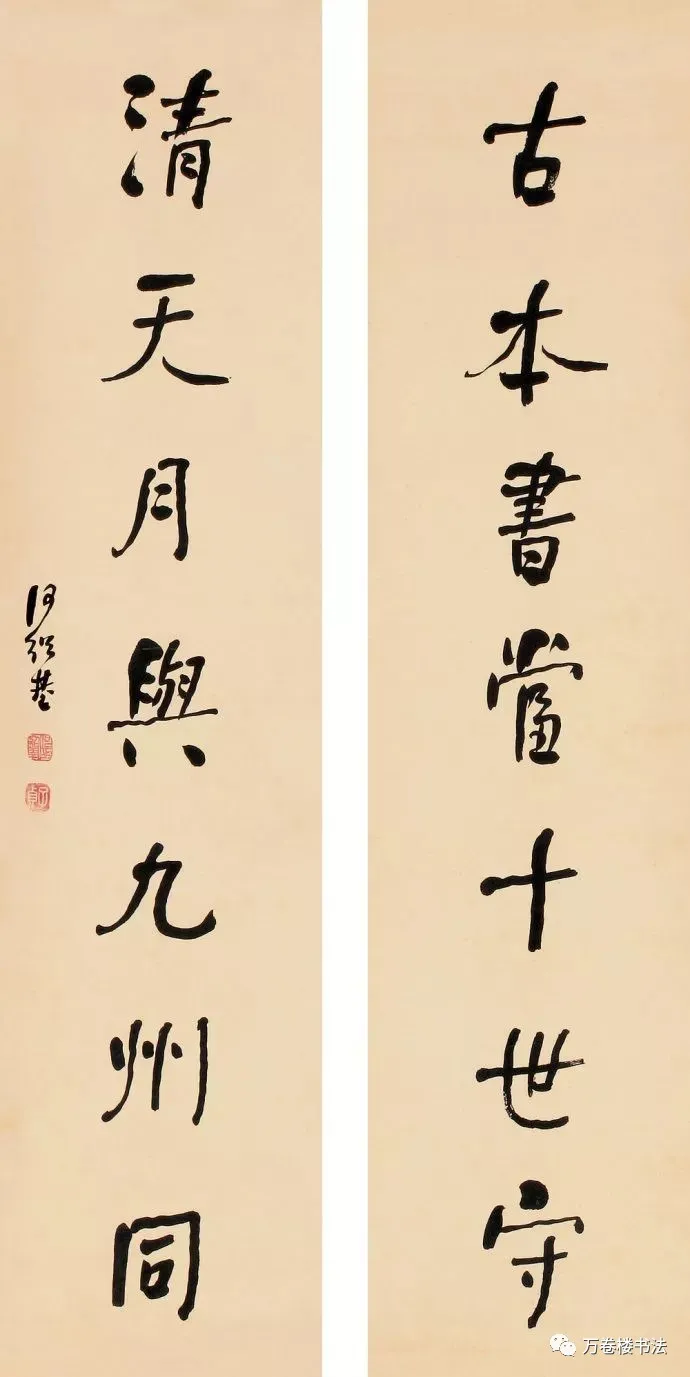 古本書當十世守
清天月與九州同
何紹基
子貞
万卷楼书法